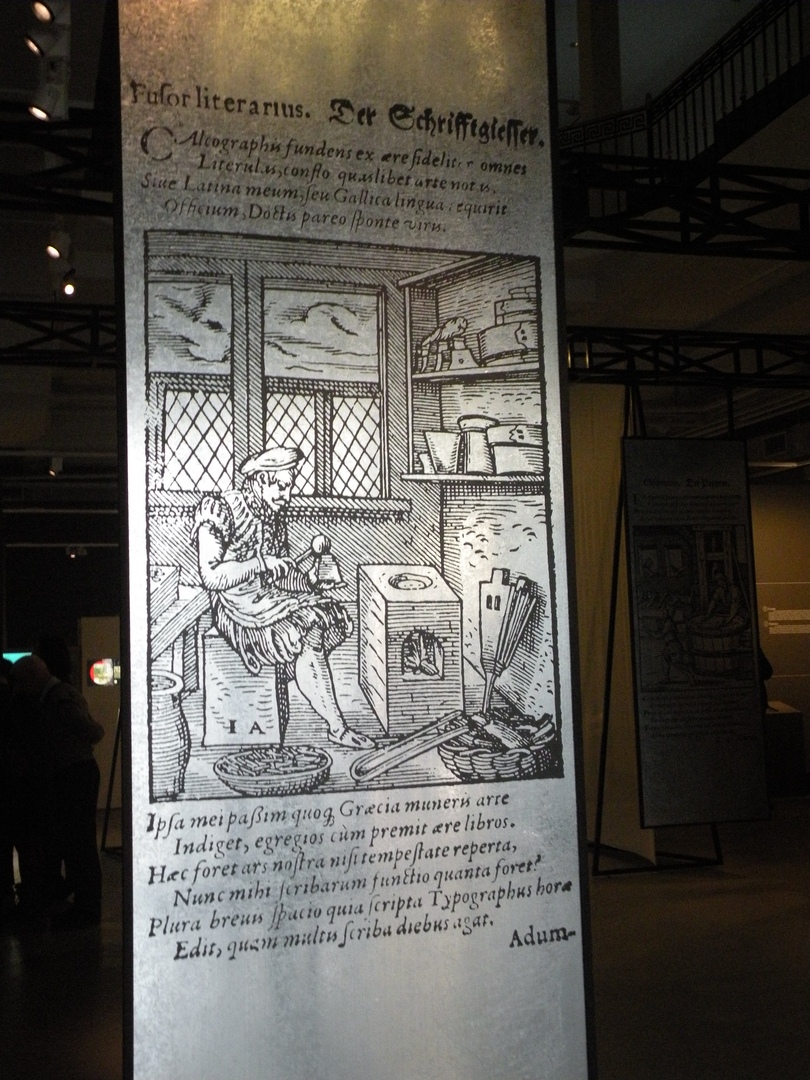 Fuſor literarius. Der Schrifftgieſſer.
CAlcographis fundens ex ære fideliter omnes
Literulas, conflo quaslibet arte notas,
Siue Latina meum, ſeu Gallica lingua requirit
Officium, Doctis pareo ſponte viris.
I A
Ipſa mei paßim quoq; Græcia muneris arte
Indiget, egregios cùm premit ære libros.
Hæc foret ars noſtra niſi tempeſtate reperta,
Nunc mihi ſcribarum functio quanta foret?
Plura breuis ſpacio quia ſcripta Typographus horæ
Edit, quàm multis ſcriba diebus agat.
Adum-